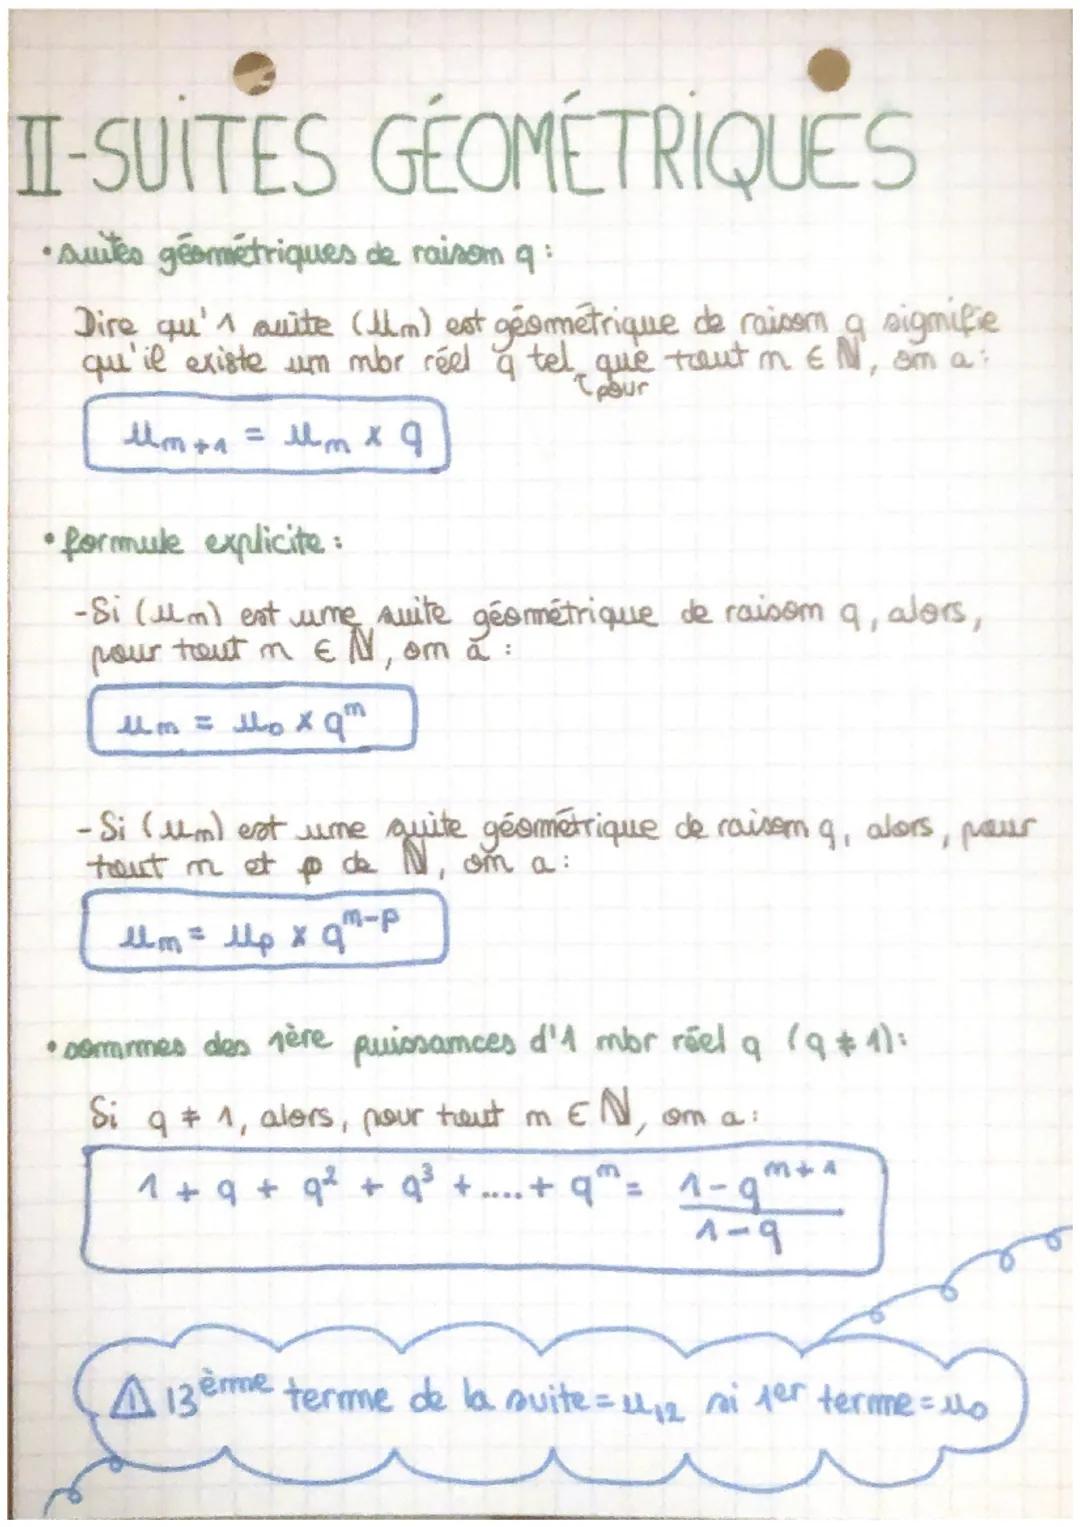 II-SUITES GÉOMÉTRIQUES
• suites géométriques de raison q :
Dire qu'1 suite (un) est géométrique de raison q signifie
qu'il existe un nbr réel q tel que tout n ∈ ℕ, on a :
↑ pour
un+1 = un × q
• formule explicite :
- Si (un) est une suite géométrique de raison q, alors,
pour tout n ∈ ℕ, on a :
un = u0 × q^n
- Si (un) est une suite géométrique de raison q, alors, pour
tout n et p de ℕ, on a :
un = up × q^n-p
• sommes des 1ère puissances d'1 nbr réel q (q ≠ 1) :
Si q ≠ 1, alors, pour tout n ∈ ℕ, on a :
1 + q + q² + q³ + .... + q^n = 1-q^n+1
1-q
⚠ 13ème terme de la suite = u12 si 1er terme = u0